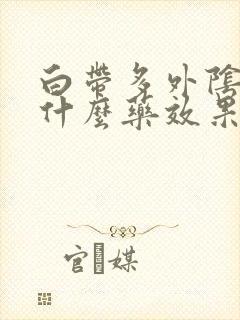 白帶多外陰
什麼藥效果
官 媒